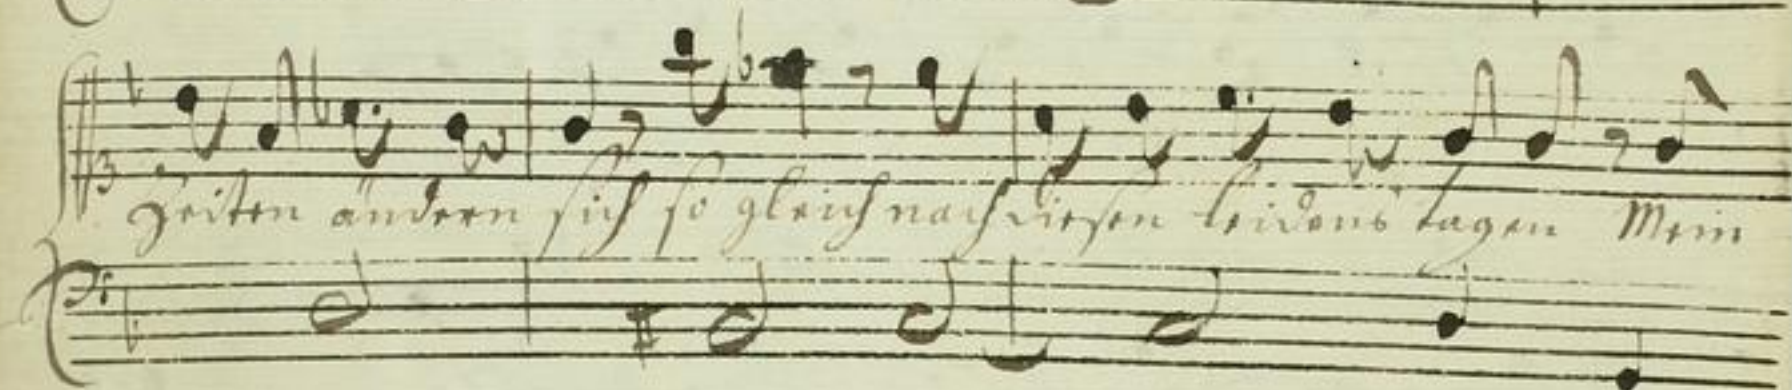 Zeiten ändern sich so gleich nach diesen leidens tagen Mein